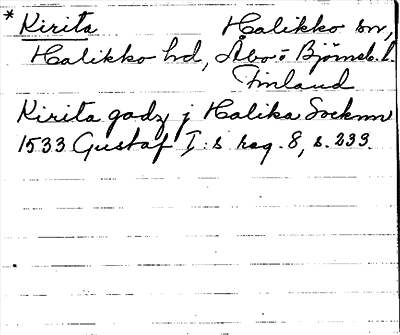 * Kirita Halikko sn,
Halikko hd, Åbo o Björneb. l.
Finland
Kirita godz j Halika Socknn
1533 Gustaf I:s reg. 8, s. 239.